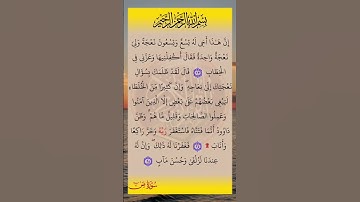 بسم الله الرحمن الرحيم
إِنَّ هَـٰذَا أَخِي لَهُ تِسْعٌ وَتِسْعُونَ نَعْجَةً وَلِيَ
نَعْجَةٌ وَاحِدَةٌ فَقَالَ أَكْفِلْنِيهَا وَعَزَّنِي فِي
الْخِطَابِ ﴿٢٣﴾ قَالَ لَقَدْ ظَلَمَكَ بِسُؤَالِ
نَعْجَتِكَ إِلَىٰ نِعَاجِهِ ۖ وَإِنَّ كَثِيرًا مِّنَ الْخُلَطَاءِ
لَيَبْغِي بَعْضُهُمْ عَلَىٰ بَعْضٍ إِلَّا الَّذِينَ آمَنُوا
وَعَمِلُوا الصَّالِحَاتِ وَقَلِيلٌ مَّا هُمْ ۗ وَظَنَّ
دَاوُودُ أَنَّمَا فَتَنَّاهُ فَاسْتَغْفَرَ رَبَّهُ وَخَرَّ رَاكِعًا
وَأَنَابَ ۩ ﴿٢٤﴾ فَغَفَرْنَا لَهُ ذَٰلِكَ ۖ وَإِنَّ لَهُ
عِندَنَا لَزُلْفَىٰ وَحُسْنَ مَآبٍ ﴿٢٥﴾
سورة ص